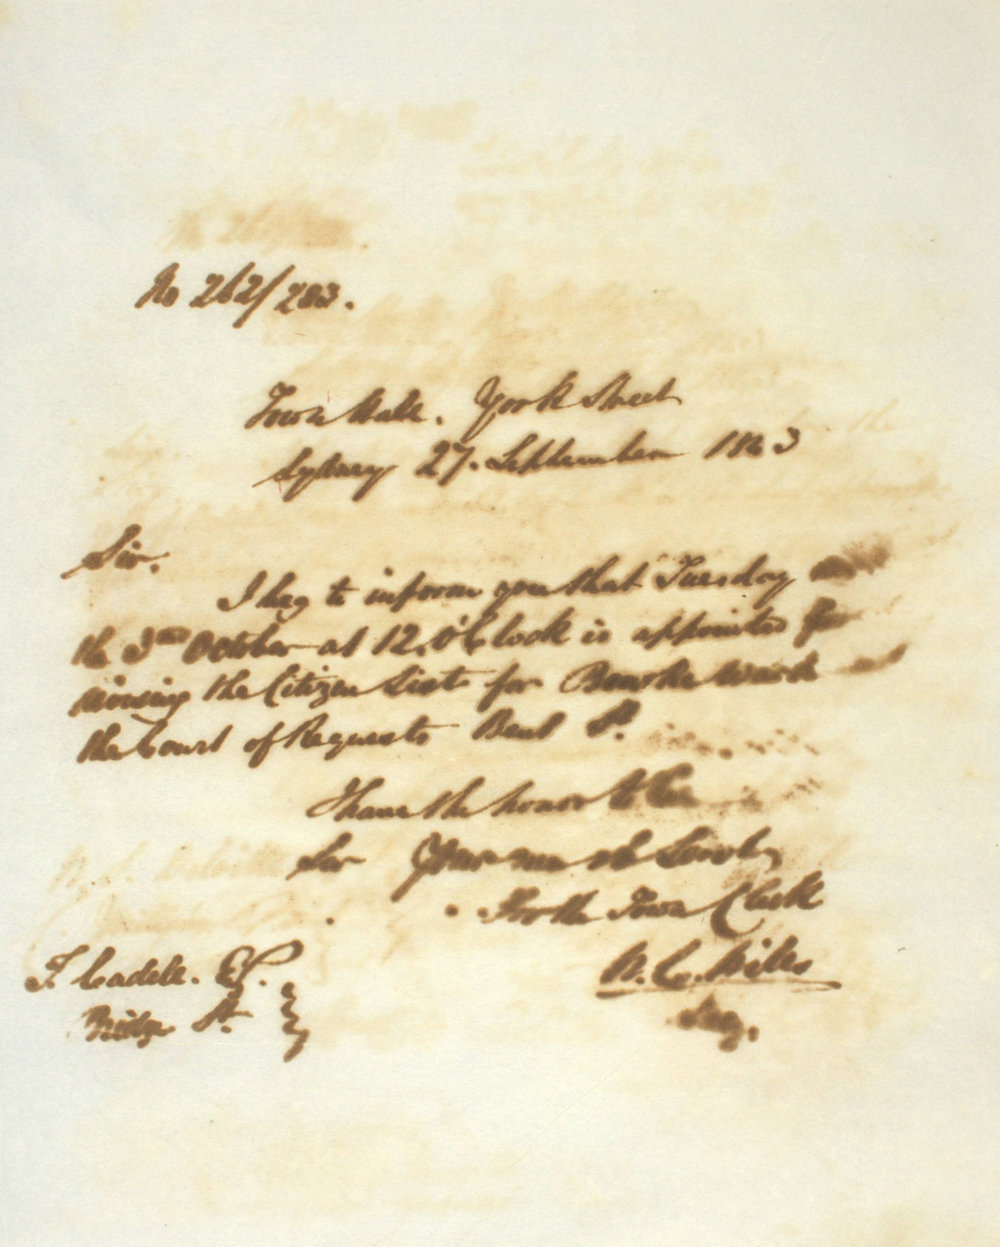 No 262/283.
Town Hall. York Street
Sydney 27. September 1843
Sir.
I beg to inform you that Tuesday
the 3rd October at 12, O'Clock is appointed for
revising the Citizen List for Bourke Ward at
the Court of Requests Bent St.
I have the honor to be
Sir Your
For the Town Clerk
W. C. Wills
T. Cadell. Esq.
Bridge St